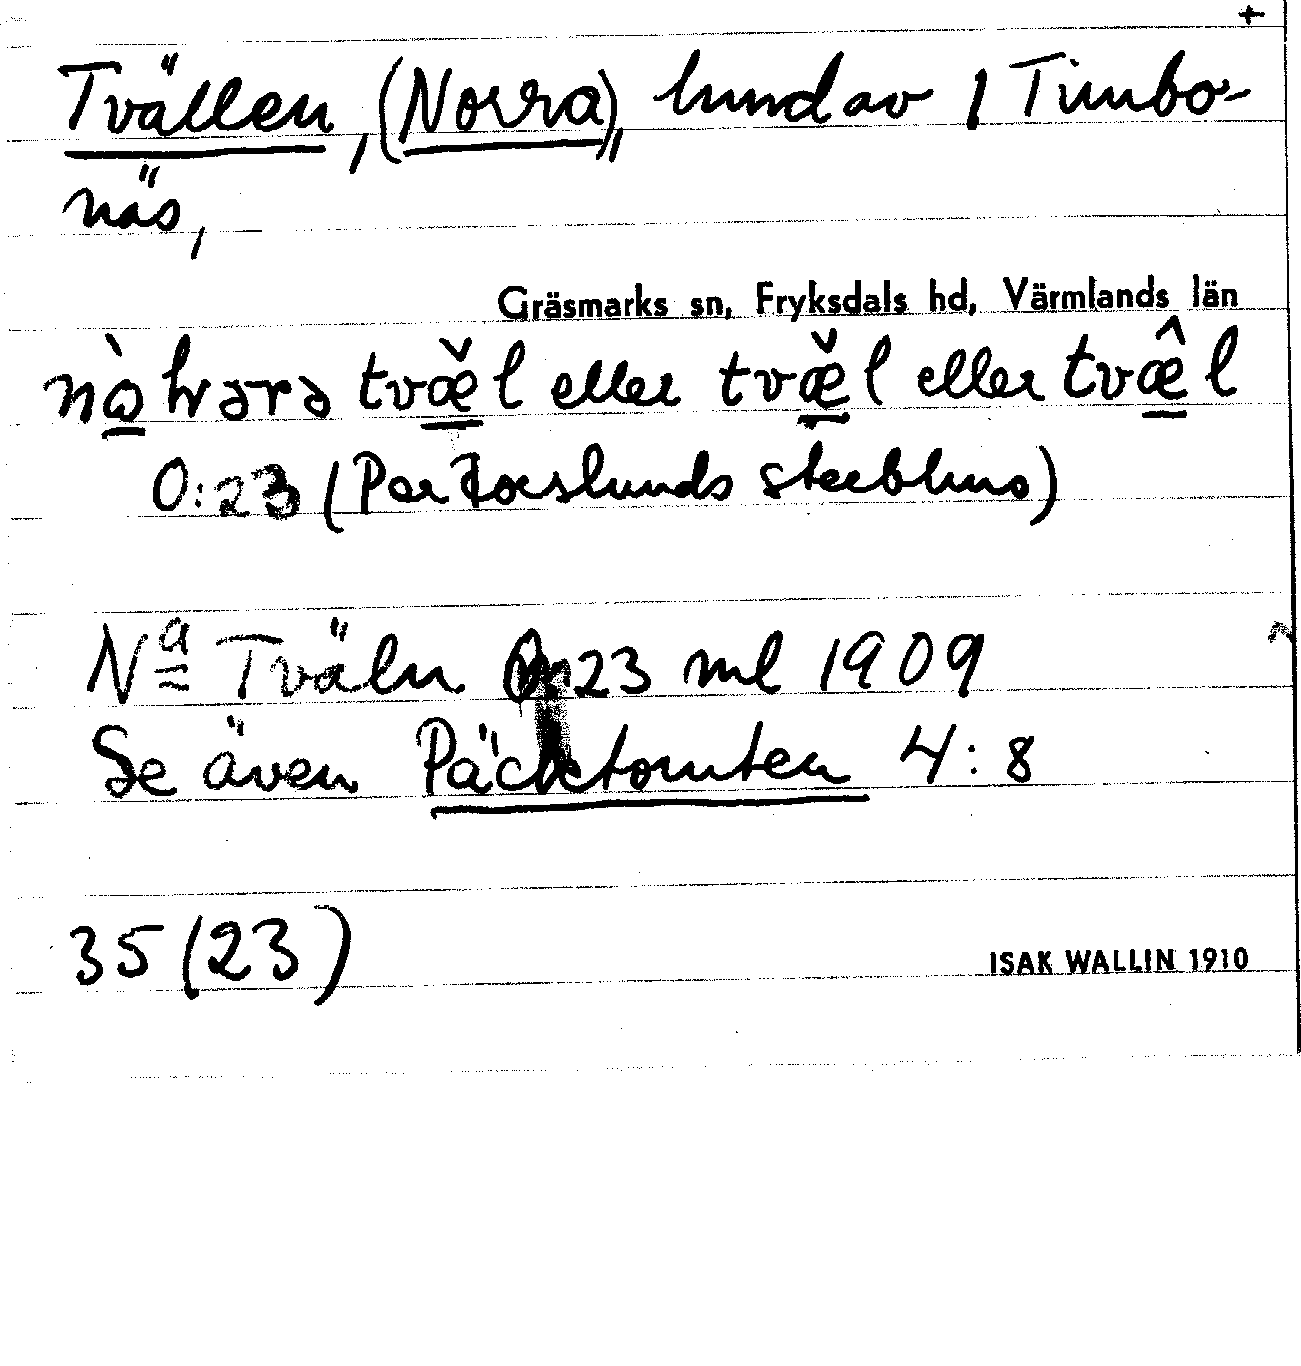 +
Tvällen, (Norra), hmd av 1 Timbo-
näs,
Gräsmarks sn, Fryksdals hd, Värmlands län
tvæ̌l eller tvæ̌l eller tvæ̂l
0:23 (Per Forslunds sterbhus)
Na Tväln 0:23 ml 1909
Se även Päcketomten 4:8
35 (23)
ISAK WALLIN 1910